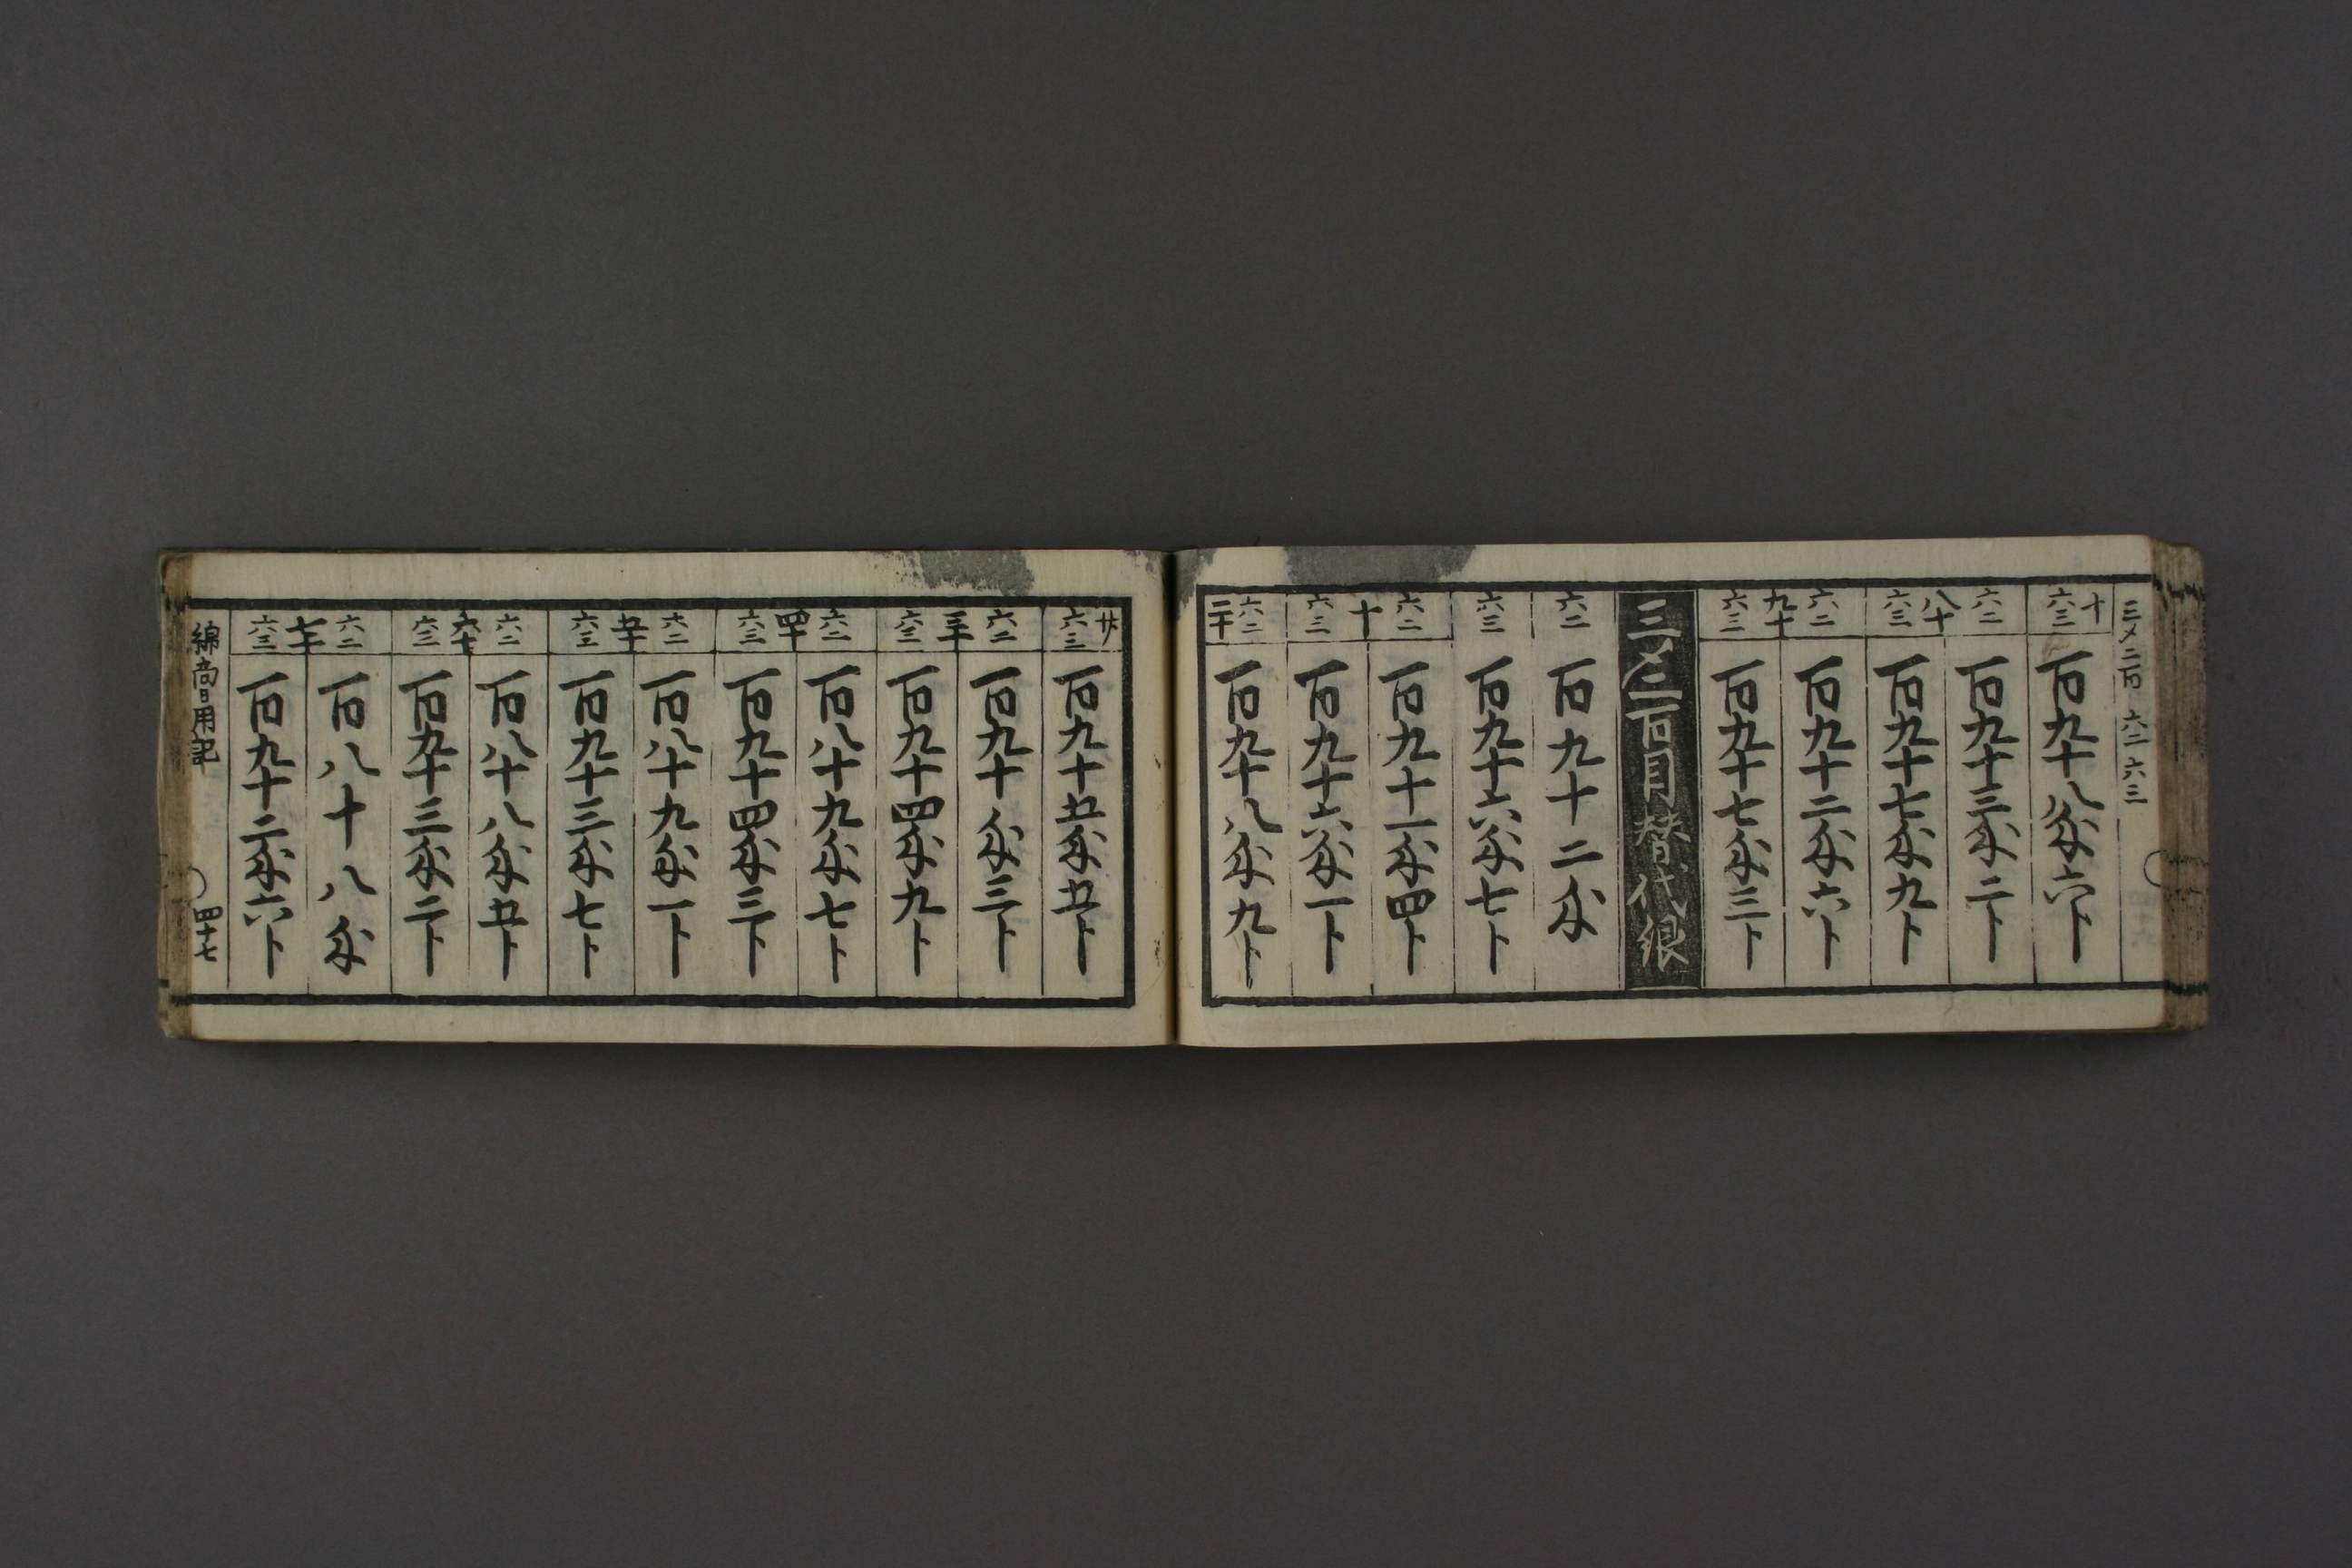 三〆二百 六二 六三
十 六三 百九十八匁六卜
六二 百九十三匁二卜
八十
六三 百九十七匁九卜
六二 百九十二匁六卜
九十
六三 百九十七匁三卜
三〆二百目替代銀
六二 百九十二匁
六三 百九十六匁七卜
六二 百九十一匁四卜
十
六三 百九十六匁一卜
六二 二十 百九十八匁九卜
廿 六三 百九十五匁五卜
六二 百九十匁三卜
三十
六三 百九十四匁九卜
六二 百八十九匁七卜
四十
六三 百九十四匁三卜
六二 百八十九匁一卜
五十
六三 百九十三匁七卜
六二 百八十八匁五卜
六十
六三 百九十三匁二卜
六二 百八十八匁
七十
六三 百九十二匁六卜
綿商日用記 四十七